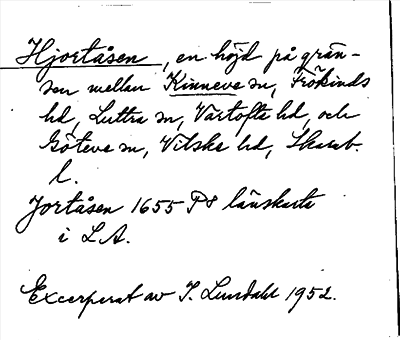 Hjortåsen, en höjd på grän-
sen mellan Kinneve sn, Frökinds
hd, Luttra sn, Vartofta hd, och
Göteve sn, Vilske hd, Skarab.
l.
Jortåsen 1655 P8 länskarta
i LA.
Excerperat av I. Lundahl 1952.